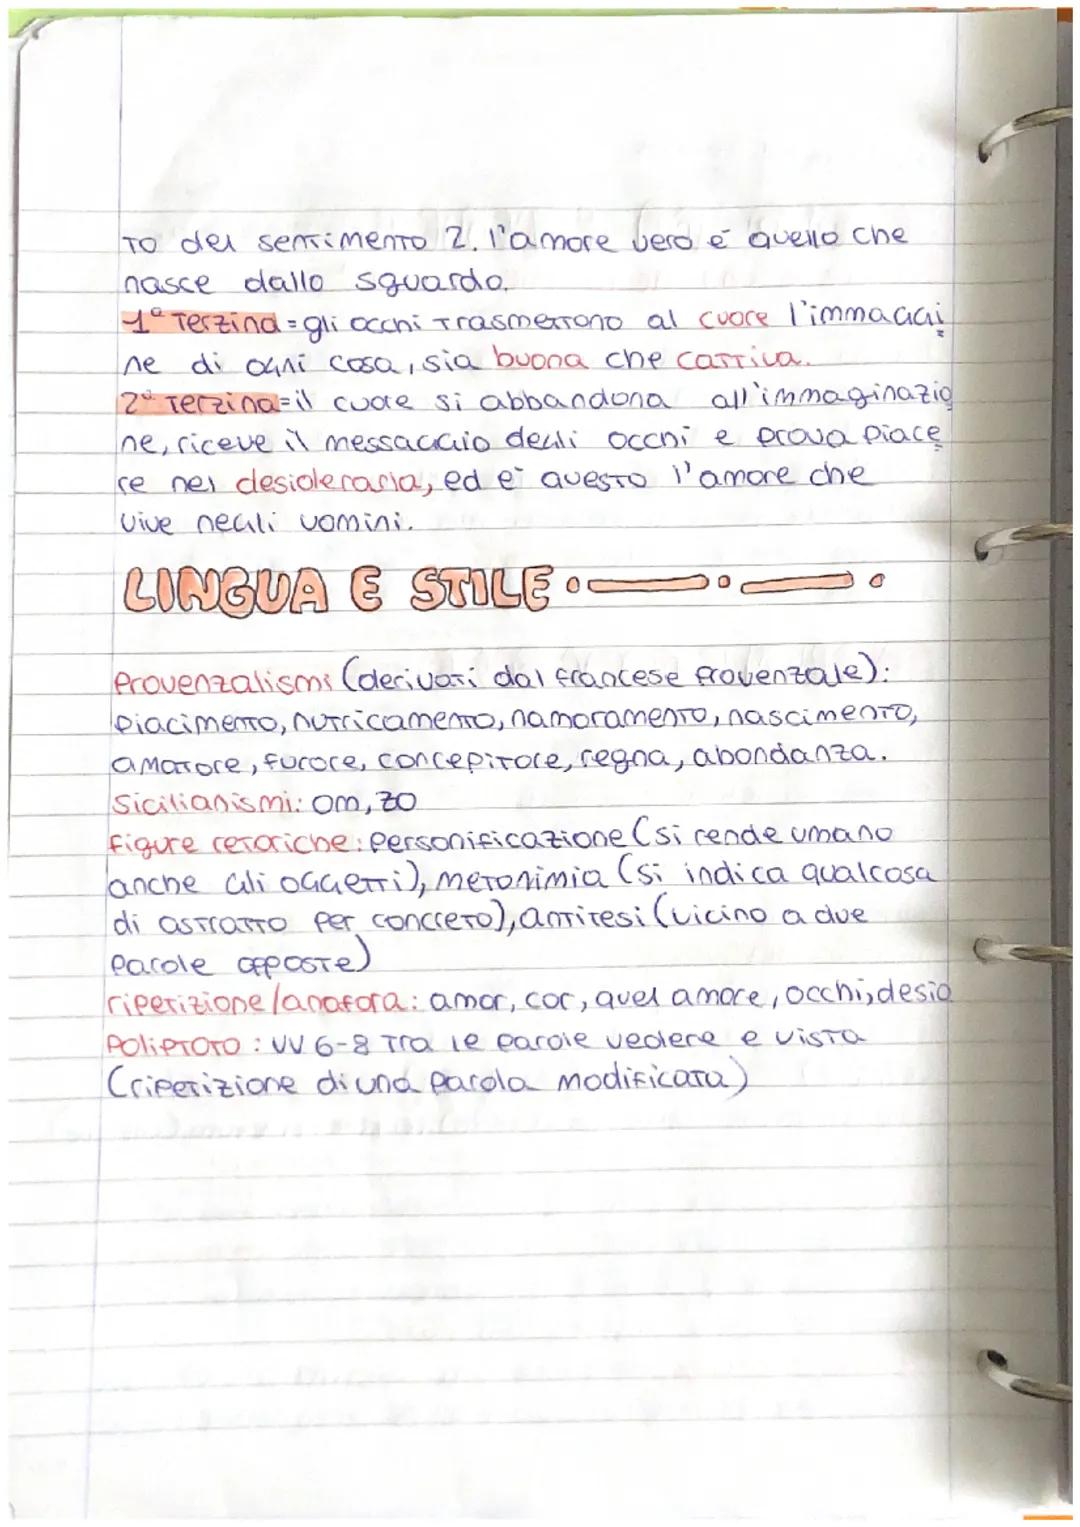 to del sentimento 2. l'amore vero é quello che
nasce dallo sguardo.
1ª Terzina = gli occhi trasmettono al cuore l'immaggi
ne di ogni cosa, sia buona che cattiva.
2ª Terzina = il cuore si abbandona all'immaginazio
ne, riceve il messaggio degli occhi e prova piace
re nel desiderarla, ed è questo l'amore che
vive negli uomini.
LINGUA E STILE
Provenzalismi (derivati dal francese provenzale):
piacimento, nutricamento, namoramento, nascimento,
amatore, furore, concepitore, regna, abondanza.
Sicilianismi: om, zo
figure retoriche: personificazione (si rende umano
anche gli oggetti), metonimia (si indica qualcosa
di astratto per concreto), antitesi (vicino a due
parole opposte)
ripetizione/anafora: amor, cor, quel amore, occhi, desio
Poliptoto: vv 6-8 tra le parole vedere e vista
(ripetizione di una parola modificata)